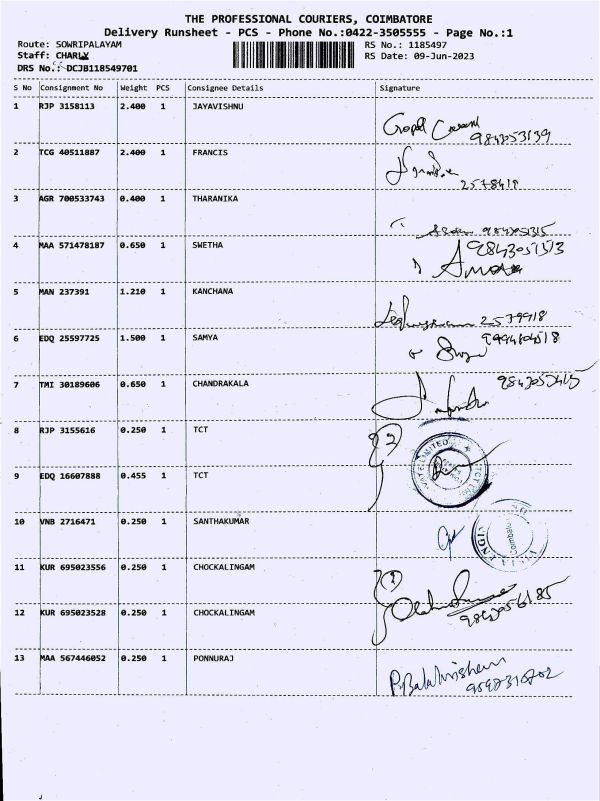 THE PROFESSIONAL COURIERS, COIMBATORE
Delivery Runsheet - PCS - Phone No.:0422-3505555 - Page No.:1
Route: SOWRIPALAYAM RS No.: 1185497
Staff: CHARLY RS Date: 09-Jun-2023
DRS No.: DCJB118549701
S No Consignment No Weight PCS Consignee Details Signature
1 RJP 3158113 2.400 1 JAYAVISHNU
2 TCG 40511887 2.400 1 FRANCIS
2578418
3 AGR 700533743 0.400 1 THARANIKA
4 MAA 571478187 0.650 1 SWETHA
5 MAN 237391 1.210 1 KANCHANA
2579918
6 EDQ 25597725 1.500 1 SAMYA
7 TMI 30189606 0.650 1 CHANDRAKALA
8 RJP 3155616 0.250 1 TCT
9 EDQ 16607888 0.455 1 TCT
10 VNB 2716471 0.250 1 SANTHAKUMAR
Coimbatore
11 KUR 695023556 0.250 1 CHOCKALINGAM
9842056185
12 KUR 695023528 0.250 1 CHOCKALINGAM
13 MAA 567446052 0.250 1 PONNURAJ
P. Balakrishnan